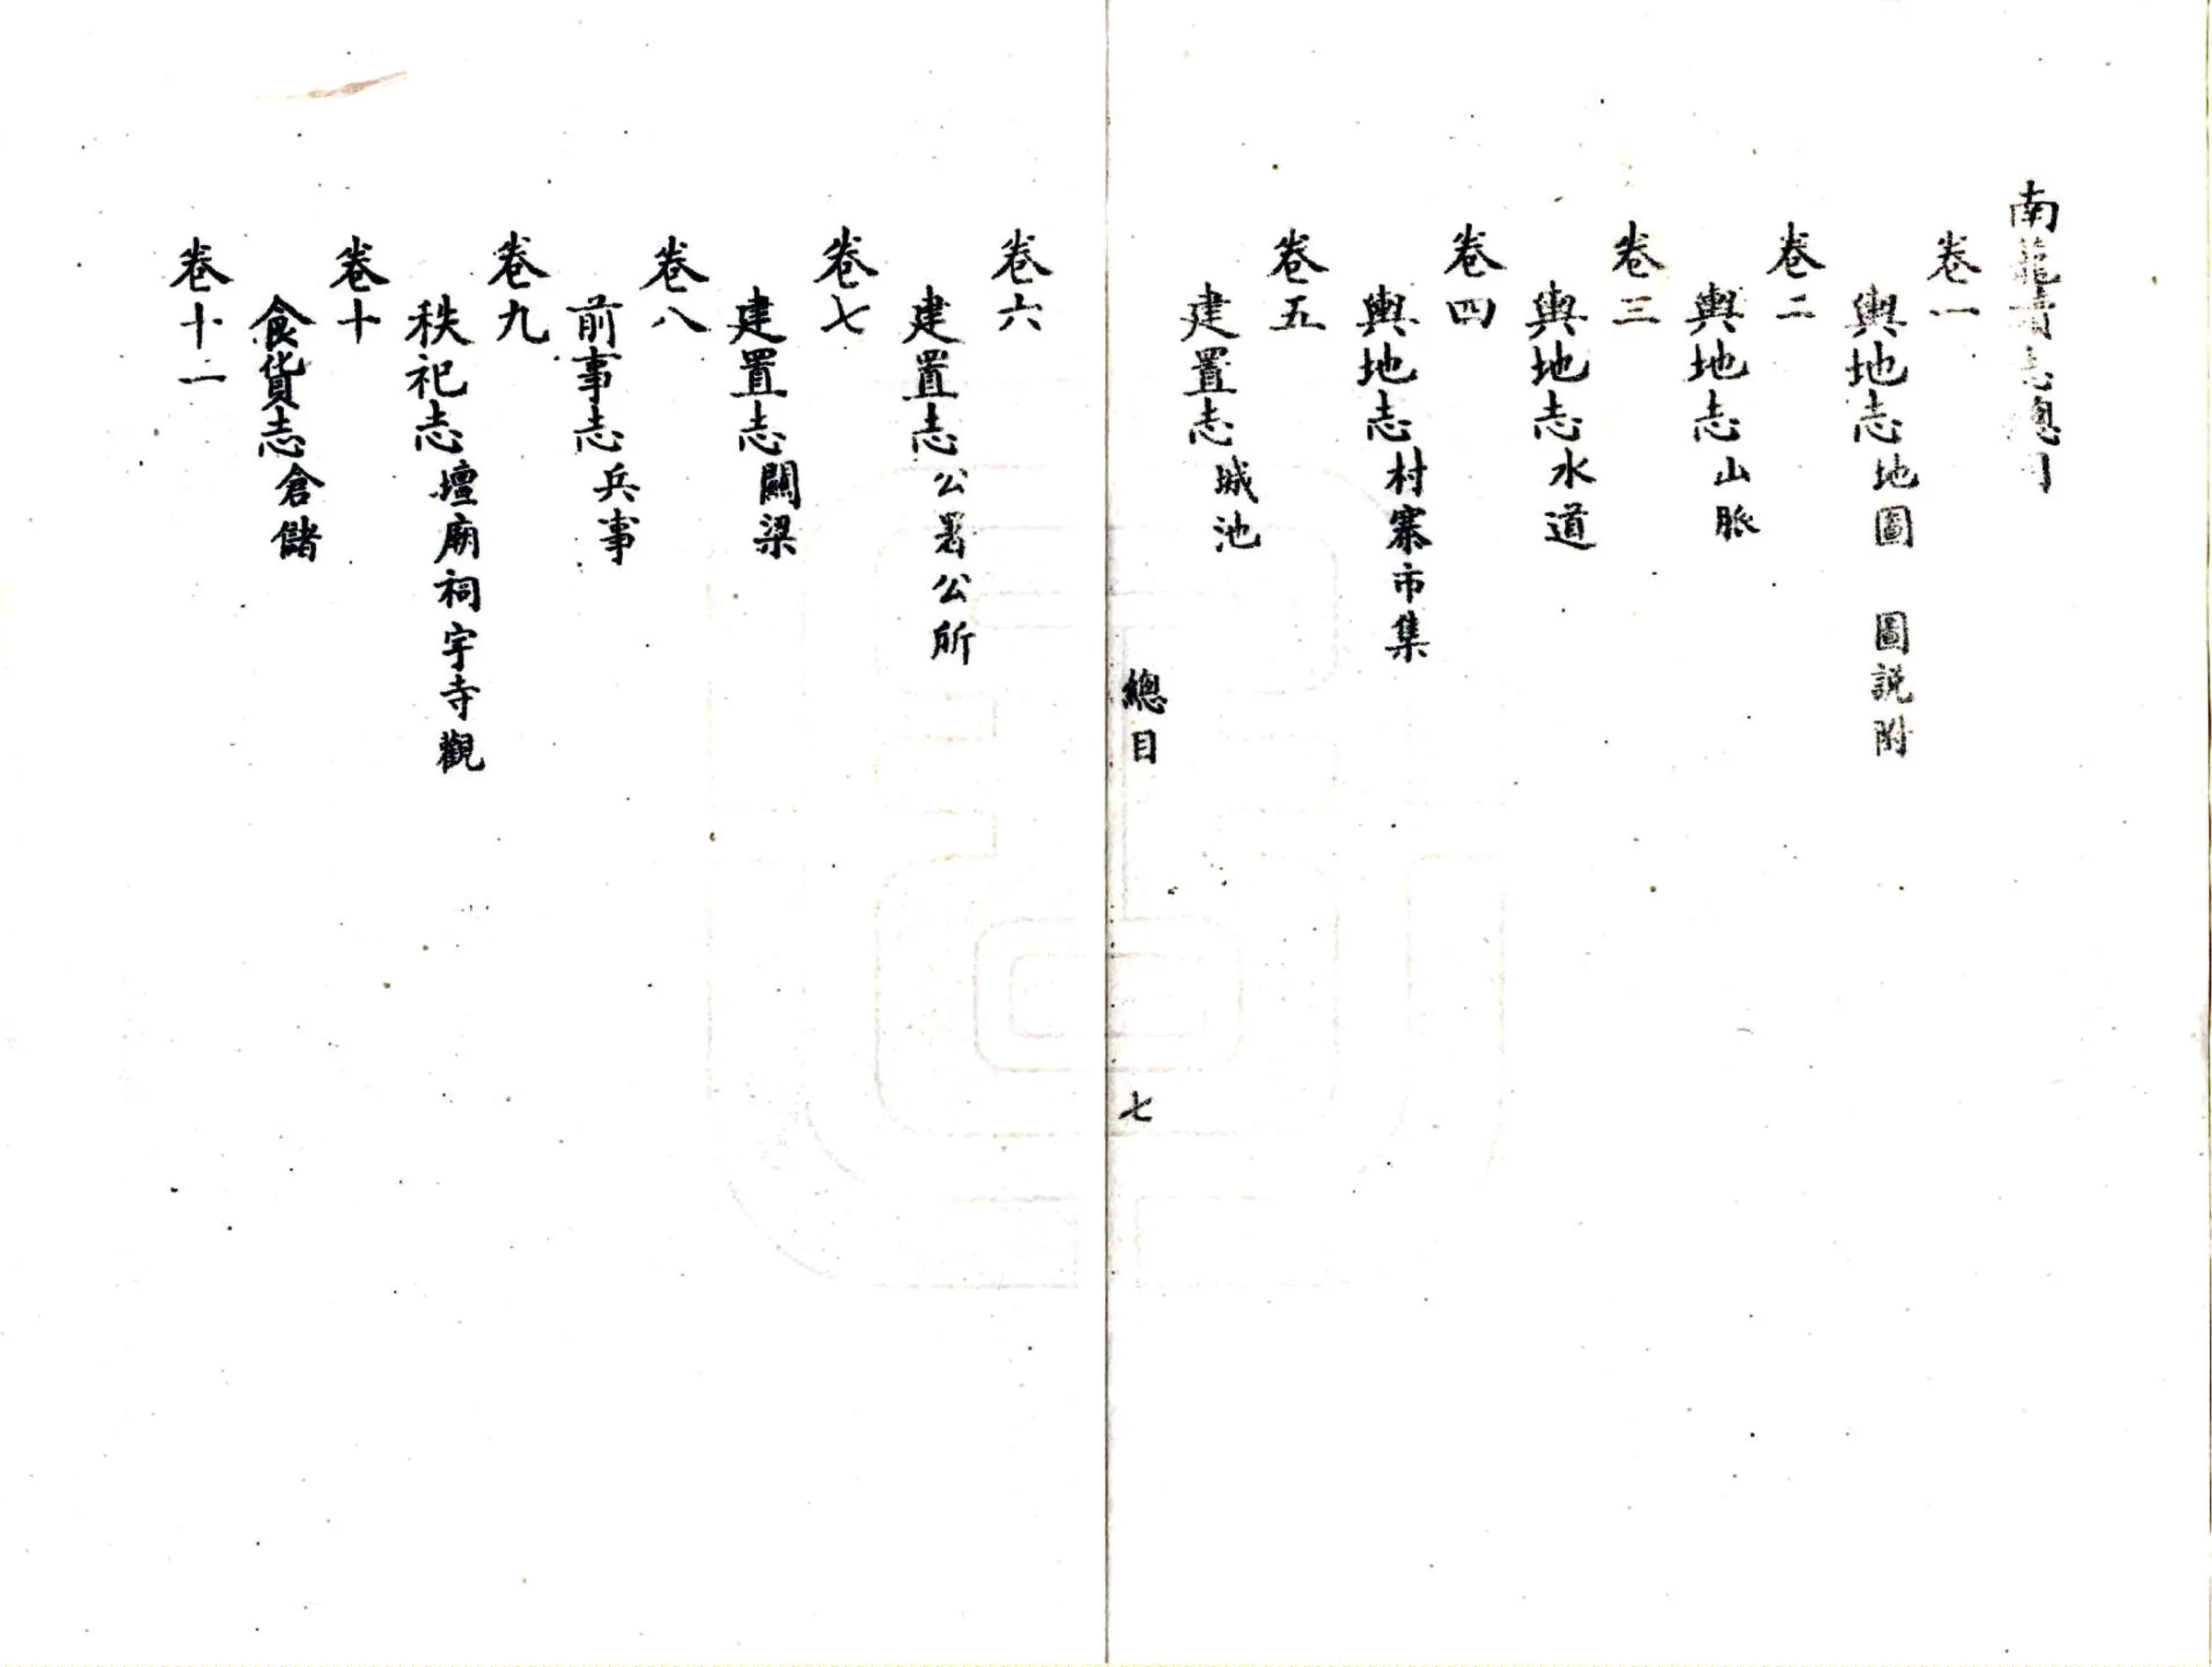 南籠續志總目
卷一
輿地志地圖　圖説附
卷二
輿地志山脈
卷三
輿地志水道
卷四
輿地志村寨市集
卷五
建置志城池
總目
七
卷六
建置志公署公所
卷七
建置志關梁
卷八
前事志兵事
卷九
秩祀志壇廟祠宇寺觀
卷十
食貨志倉儲
卷十一